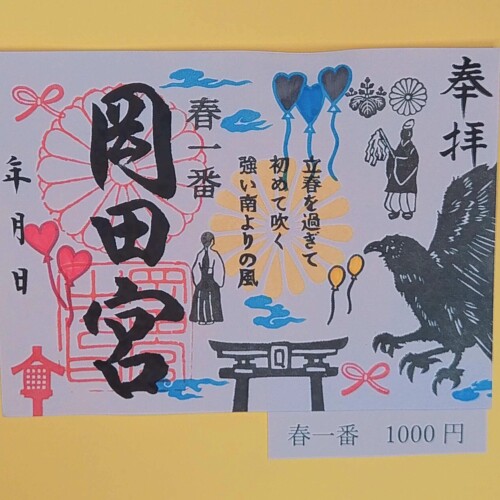 奉拝
春一番
立春を過ぎて
初めて吹く
強い南よりの風
岡田宮
年月日
春一番 1000円